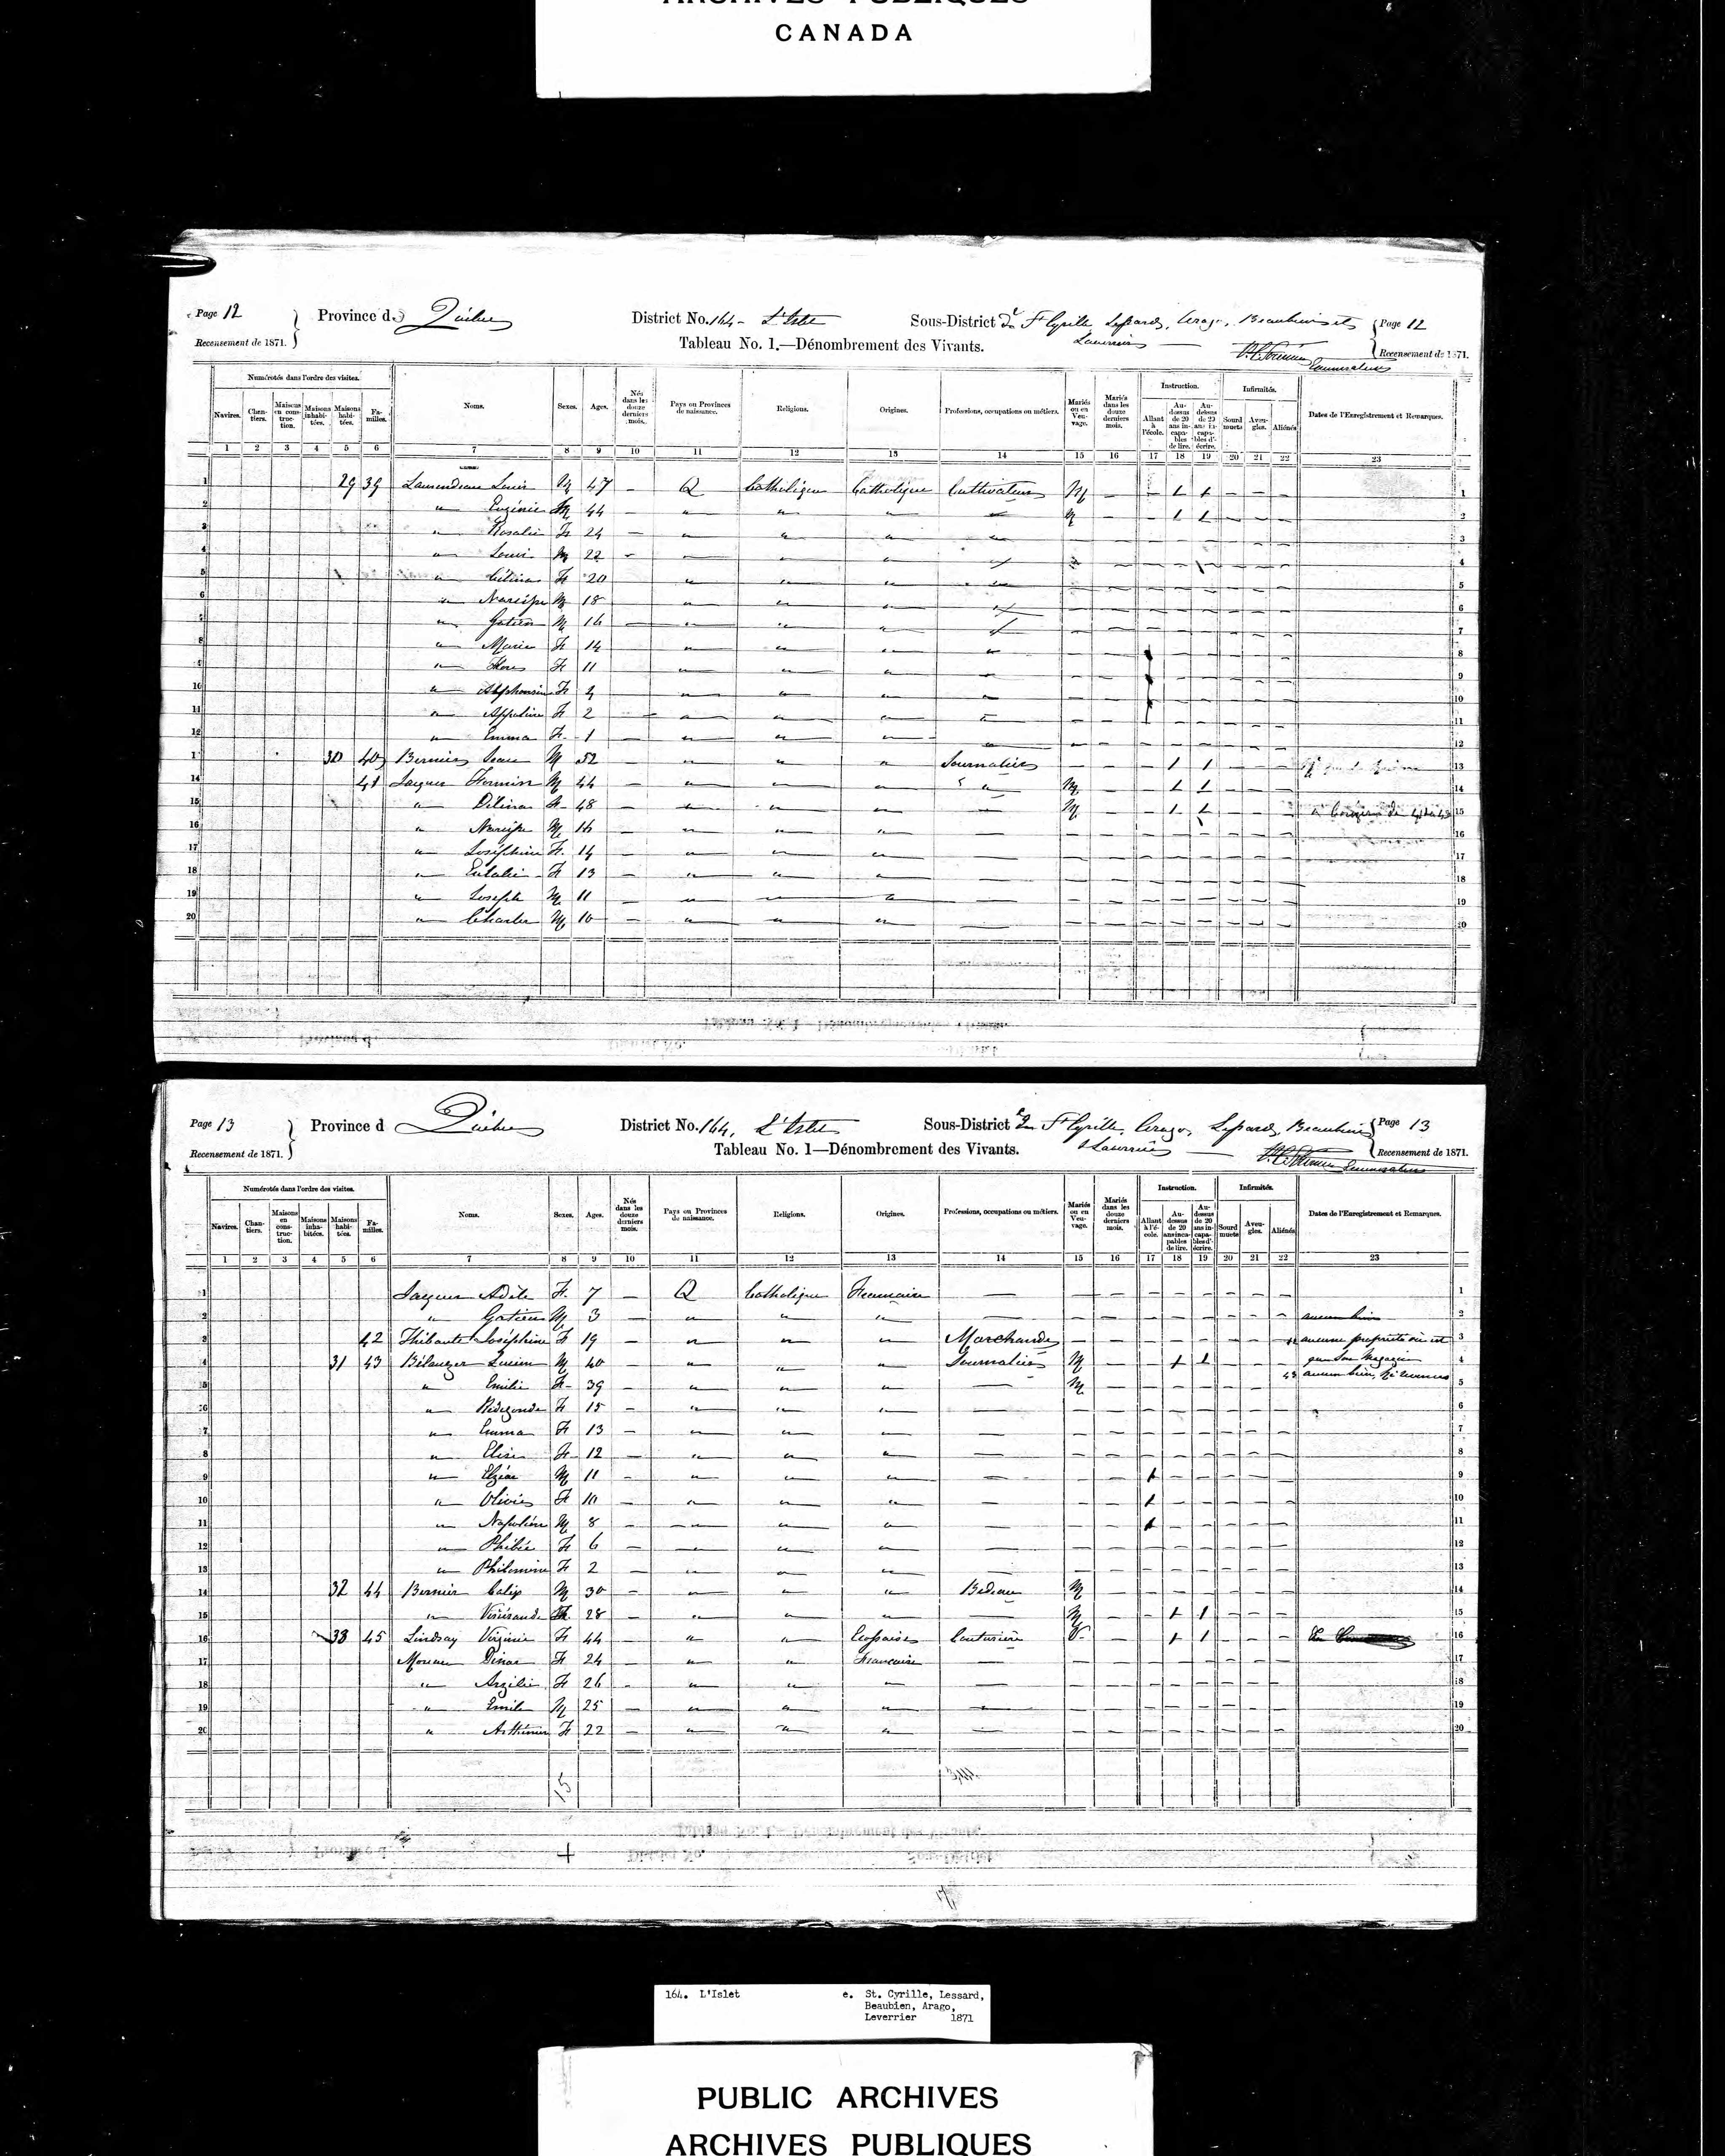 ARCHIVES PUBLIQUES
CANADA
Page 12 Province de Québec District No. 164 - L'Islet Sous-District de St Cyrille Lessard, Arago, Beaubien et Page 12
Recensement de 1871. Tableau No. 1.—Dénombrement des Vivants. Leverrier Recensement de 1871.
Énumérateur
Numérotés dans l'ordre des visites. Instruction. Infirmités.
Navires. Chantiers. Maisons en construction. Maisons inhabitées. Maisons habitées. Familles. Noms. Sexes. Ages. Nés dans les douze derniers mois. Pays ou Provinces de naissance. Religions. Origines. Professions, occupations ou métiers. Mariés ou en Veuvage. Mariés dans les douze derniers mois. Allant à l'école. Au-dessus de 20 ans incapables de lire. Au-dessus de 20 ans incapables d'écrire. Sourd muets Aveugles. Aliénés Dates de l'Enregistrement et Remarques.
1 2 3 4 5 6 7 8 9 10 11 12 13 14 15 16 17 18 19 20 21 22 23
1 29 39 Louis M 47 — Q Catholique Catholique Cultivateur M — — 1 1 — — — 1
2 " Eugénie 44 — " " " M — — 1 1 — — — 2
3 " Rosalie F 24 — " " " 3
4 " Louis M 22 — " " " 4
5 " Célina F 20 " " " 5
6 " Narcisse M 18 " " " 6
7 " Gatien M 16 — " " " 7
8 " Marie F 14 " " " 1 8
9 " Flore F 11 " " " 1 9
10 " Alphonsine F 4 " " " 10
11 " Appoline F 2 — " " " 11
12 " Emma F 1 — " " " 12
13 30 40 Bernier M 52 — " " " Journalier — — — 1 1 — — — 13
14 41 Jacques Firmin M 44 — " " " " M — — 1 1 — — — 14
15 " Délina F 48 — " " " — M — — 1 1 — — — 15
16 " Narcisse M 16 — " " " — 16
17 " Joséphine F 14 — " " " — 17
18 " Eulalie F 13 — " " " — 18
19 " Joseph M 11 — " " " — 19
20 " Charles M 10 — " " " — 20
Page 13 Province d Québec District No. 164, L'Islet Sous-District de St Cyrille, Arago, Lessard, Beaubien Page 13
Recensement de 1871. Tableau No. 1—Dénombrement des Vivants. & Leverrier Recensement de 1871.
Énumérateur
Numérotés dans l'ordre des visites. Instruction. Infirmités.
Navires. Chantiers. Maisons en construction. Maisons inhabitées. Maisons habitées. Familles. Noms. Sexes. Ages. Nés dans les douze derniers mois. Pays ou Provinces de naissance. Religions. Origines. Professions, occupations ou métiers. Mariés ou en Veuvage. Mariés dans les douze derniers mois. Allant à l'école. Au-dessus de 20 ans incapables de lire. Au-dessus de 20 ans incapables d'écrire. Sourd muets Aveugles. Aliénés Dates de l'Enregistrement et Remarques.
1 2 3 4 5 6 7 8 9 10 11 12 13 14 15 16 17 18 19 20 21 22 23
1 Jacques Adèle F 7 — Q Catholique Francaise — 1
2 " Gatien M 3 — " " " — aucun bien 2
3 42 Thibault Joséphine F 19 — " " " Marchande 42 aucune propriété 3
4 31 43 Bélanger M 40 — " " " Journalier M — — 1 1 — — — que son Magazin 4
5 " Emilie F 39 — " " " — M 43 aucun bien, 5
6 " Rédegonde F 15 — " " " — 6
7 " Emma F 13 — " " " — 7
8 " Elise F 12 — " " " — 8
9 " Elzéar M 11 — " " " — 1 9
10 " F 10 — " " " — 1 10
11 " Napoléon M 8 — " " " — 1 11
12 " Phébée F 6 — " " " — 12
13 " Philomène F 2 — " " " — 13
14 32 44 Bernier Calix M 30 — " " " Bedeau M 14
15 " F 28 — " " " — M — — 1 1 — — — 15
16 33 45 Lindsay Virginie F 44 — " " Ecossaise Couturière V — — 1 1 — — — 16
17 Dina F 24 — " " Francaise — 17
18 " Arzélie F 26 — " " " — 18
19 " Emile M 25 — " " " — 19
20 " F 22 — " " " — 20
164. L'Islet e. St. Cyrille, Lessard,
Beaubien, Arago,
Leverrier 1871
PUBLIC ARCHIVES
ARCHIVES PUBLIQUES